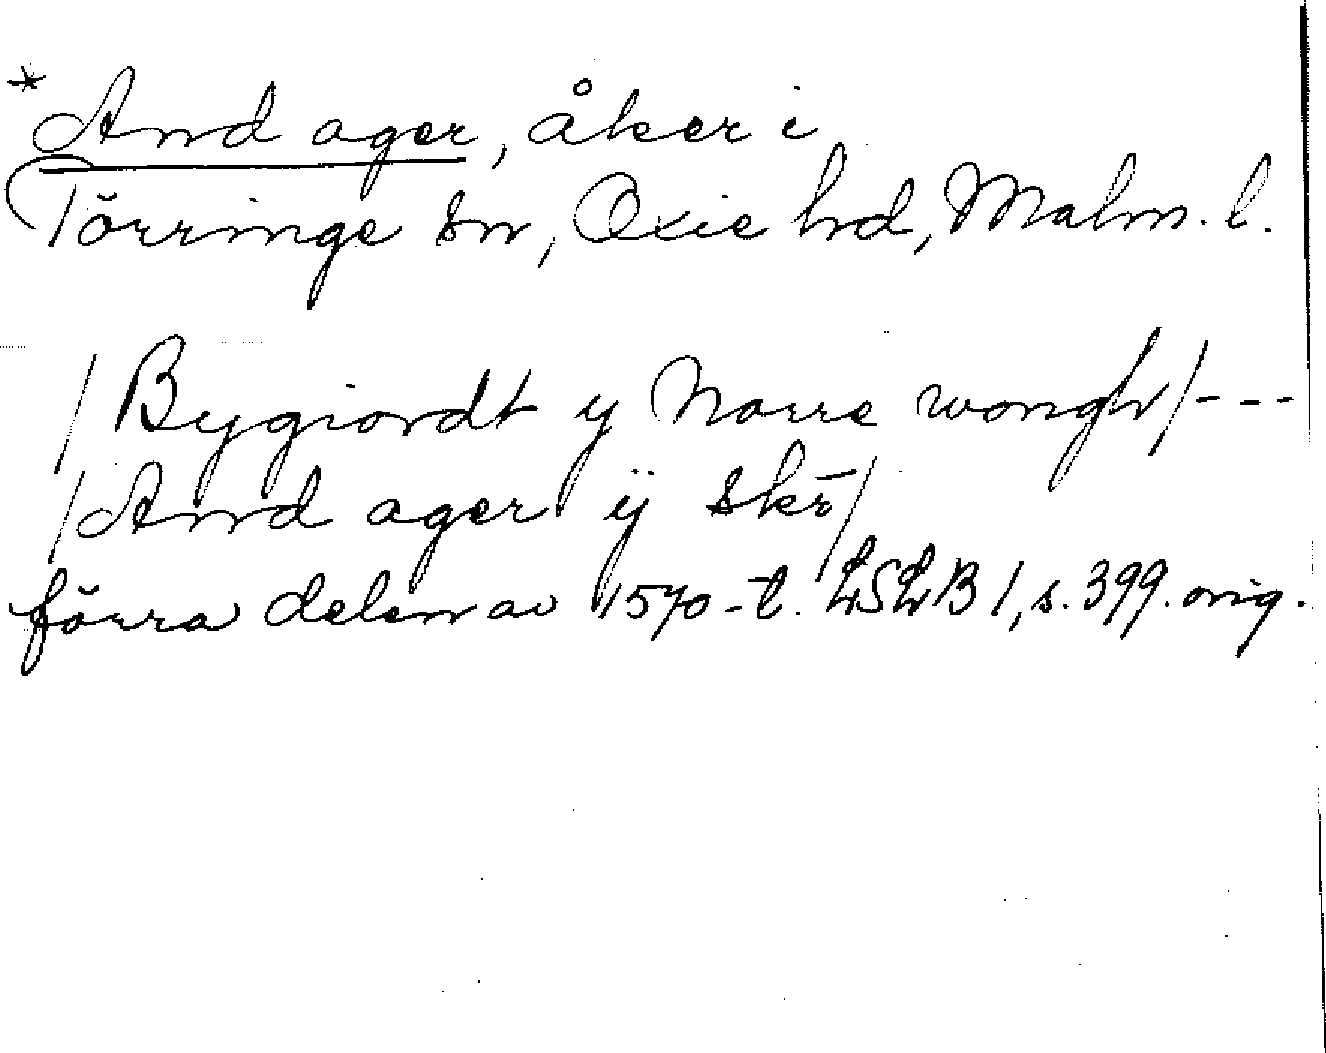 *And ager, åker i
Törringe sn, Oxie hd, Malm. l.
/Bygiordt y Norre wongh/---
/And ager ÿ skō/
förra delen av 1570-t. LSLB 1, s. 399. orig.